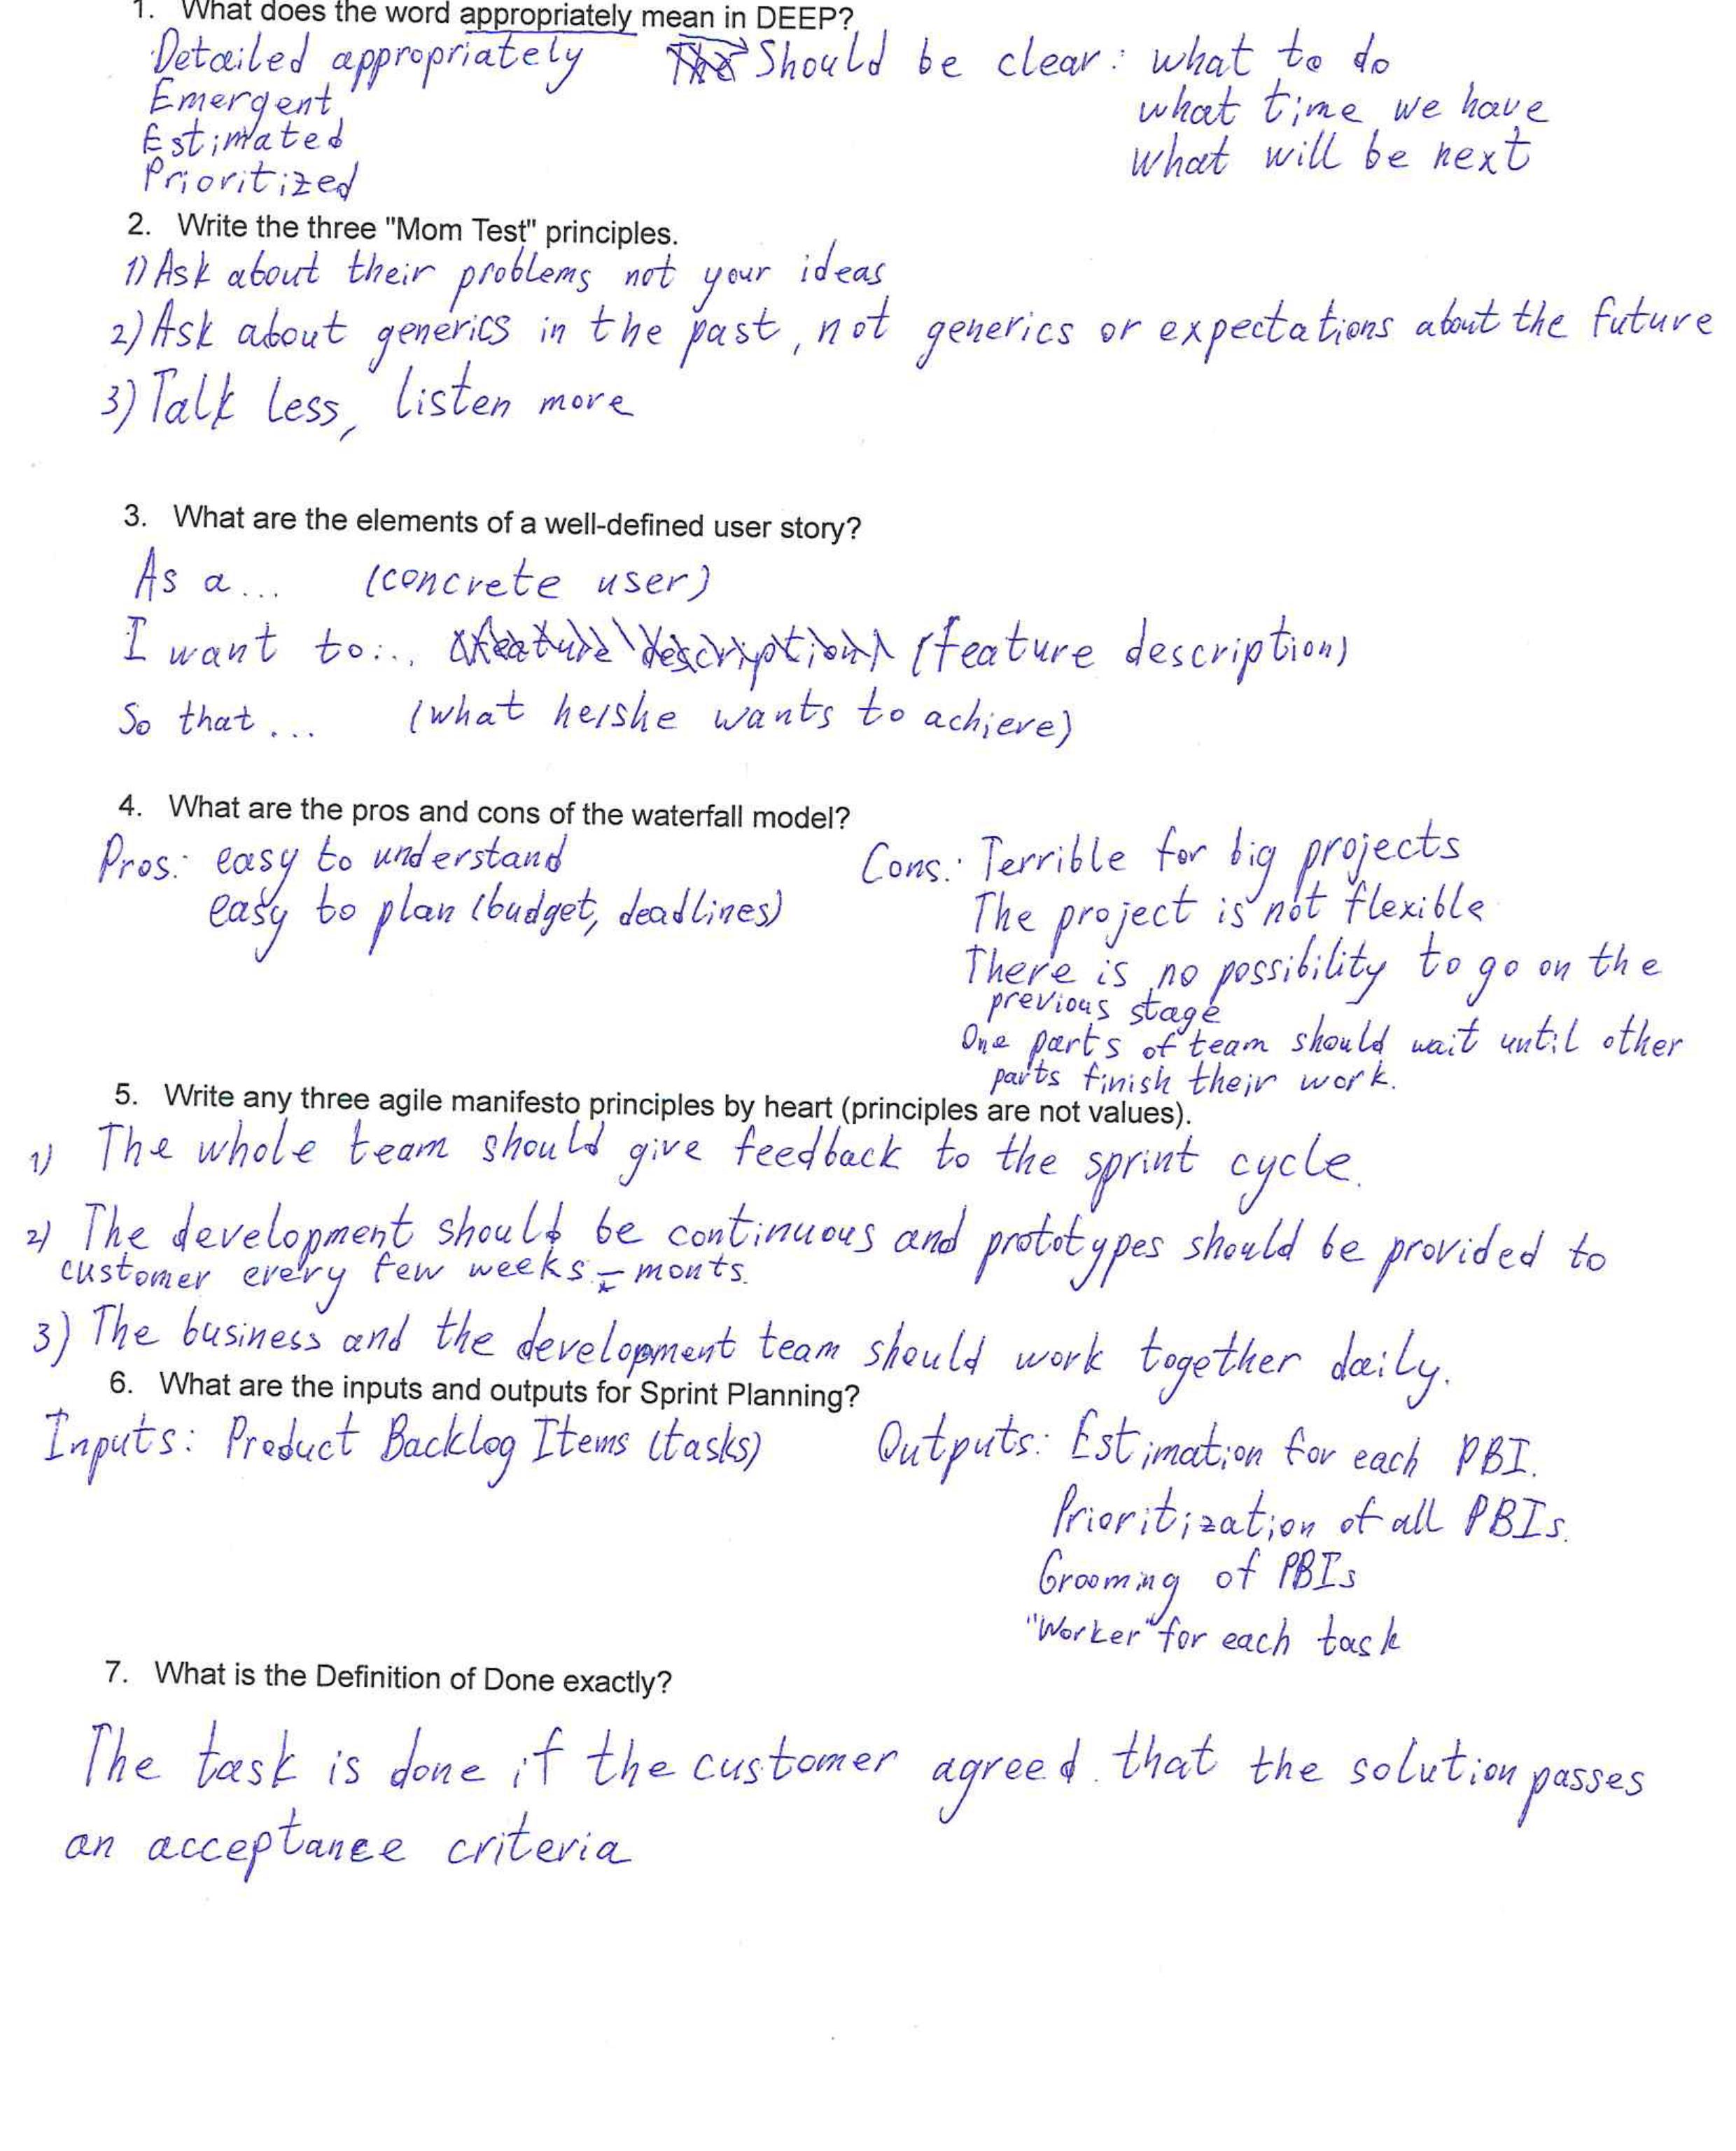 1. What does the word appropriately mean in DEEP?
Detailed appropriately Should be clear: what to do
Emergent what time we have
Estimated what will be next
Prioritized
2. Write the three "Mom Test" principles.
1) Ask about their problems not your ideas
2) Ask about generics in the past, not generics or expectations about the future
3) Talk less, listen more
3. What are the elements of a well-defined user story?
As a... (concrete user)
I want to... (feature description) (feature description)
So that... (what he/she wants to achieve)
4. What are the pros and cons of the waterfall model?
Pros: easy to understand
easy to plan (budget, deadlines)
Cons: Terrible for big projects
The project is not flexible
There is no possibility to go on the
previous stage
One parts of team should wait until other
parts finish their work.
5. Write any three agile manifesto principles by heart (principles are not values).
1) The whole team should give feedback to the sprint cycle.
2) The development should be continuous and prototypes should be provided to
customer every few weeks - monts.
3) The business and the development team should work together daily.
6. What are the inputs and outputs for Sprint Planning?
Inputs: Product Backlog Items (tasks) Outputs: Estimation for each PBI.
Prioritization of all PBIs.
Grooming of PBIs
"Worker" for each task
7. What is the Definition of Done exactly?
The task is done if the customer agreed that the solution passes
an acceptance criteria